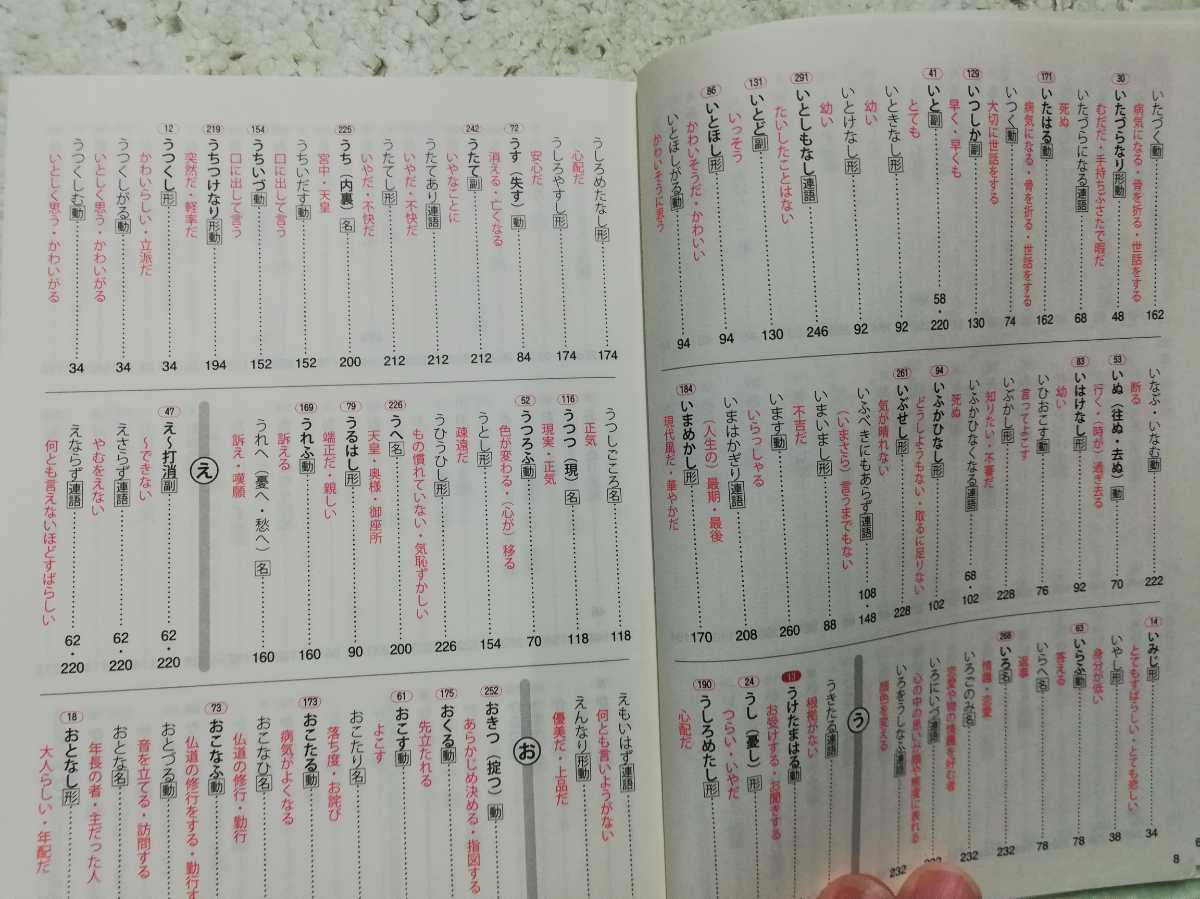 いたづく 動 162
病気になる・骨を折る・世話をする
30 いたづらなり 形動 48
むだだ・手持ちぶさたで暇だ
いたづらになる 連語 68
死ぬ
171 いたはる 動 162
病気になる・骨を折る・世話をする
いつく 動 74
大切に世話をする
129 いつしか 副 130
早く・早くも
41 いと 副 58・220
とても
いときなし 形 92
幼い
いとけなし 形 92
幼い
291 いとしもなし 連語 246
たいしたことはない
131 いとど 副 130
いっそう
86 いとほし 形 94
かわいそうだ・かわいい
いとほしがる 動 94
かわいそうに思う
いなぶ・いなむ 動 222
断る
53 いぬ（往ぬ・去ぬ） 動 70
行く・（時が）過ぎ去る
83 いはけなし 形 92
幼い
いひおこす 動 76
言ってよこす
いぶかし 形 228
知りたい・不審だ
いふかひなくなる 連語 68・102
死ぬ
94 いふかひなし 形 102
どうしようもない・取るに足りない
261 いぶせし 形 228
気が晴れない
いふべきにもあらず 連語 108・148
（いまさら）言うまでもない
いまいまし 形 88
不吉だ
います 動 260
いらっしゃる
いまはかぎり 連語 208
（人生の）最期・最後
184 いまめかし 形 170
現代風だ・華やかだ
14 いみじ 形 34
とてもすばらしい・とても悲しい
いやし 形 38
身分が低い
63 いらふ 動 78
答える
いらへ 名 78
返事
268 いろ 名 232
情趣・恋愛
いろごのみ 名 232
恋愛や物の情趣を好む者
いろにいづ 連語
心の中の思いが顔や態度に表れる
いろをうしなふ 連語 232
顔色を変える
う
うきたる 連語
根拠がない
13 うけたまはる 動
お受けする・お聞きする
24 うし（憂し） 形
つらい・いやだ
190 うしろめたし 形
心配だ
8
うしろめたなし 形 174
心配だ
うしろやすし 形 174
安心だ
72 うす（失す） 動 84
消える・亡くなる
242 うたて 副 212
いやなことに
うたてあり 連語 212
いやだ・不快だ
うたてし 形 212
いやだ・不快だ
225 うち（内裏） 名 200
宮中・天皇
うちいだす 動 152
口に出して言う
154 うちいづ 動 152
口に出して言う
219 うちつけなり 形動 194
突然だ・軽率だ
12 うつくし 形 34
かわいらしい・立派だ
うつくしがる 動 34
いとしく思う・かわいがる
うつくしむ 動 34
いとしく思う・かわいがる
うつしごころ 名 118
正気
116 うつつ（現） 名 118
現実・正気
52 うつろふ 動 70
色が変わる・（心が）移る
うとし 形 154
疎遠だ
うひうひし 形 226
もの慣れていない・気恥ずかしい
226 うへ 名 200
天皇・奥様・御座所
79 うるはし 形 90
端正だ・親しい
169 うれふ 動 160
訴える
うれへ（憂へ・愁へ） 名 160
訴え・嘆願
え
47 え〜打消 副 62・220
〜できない
えさらず 連語 62・220
やむをえない
えならず 連語 62・220
何とも言えないほどすばらしい
えもいはず 連語
何とも言いようがない
えんなり 形動
優美だ・上品だ
お
252 おきつ（掟つ） 動
あらかじめ決める・指図する
175 おくる 動
先立たれる
61 おこす 動
よこす
おこたり 名
落ち度・お詫び
173 おこたる 動
病気がよくなる
おこなひ 名
仏道の修行・勤行
73 おこなふ 動
仏道の修行をする・勤行す
おとづる 動
音を立てる・訪問する
おとな 名
年長の者・主だった人
18 おとなし 形
大人らしい・年配だ